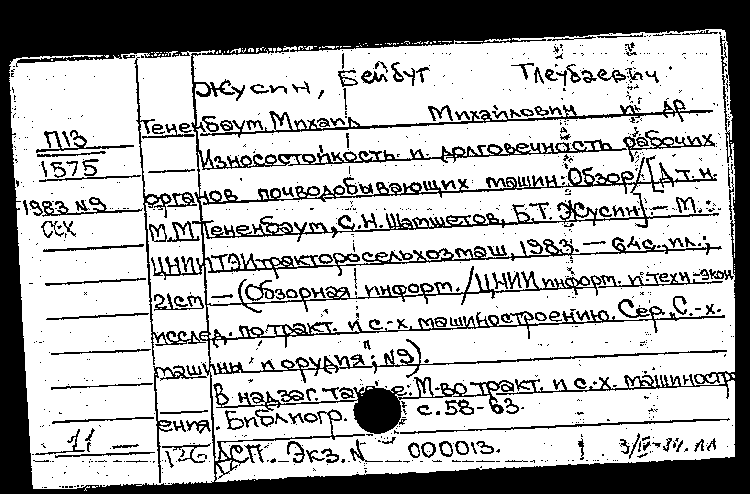 Жусин, Бейбут Тлеубаевич
Тененбаум, Михаил Михайлович и др.
П13
1575
Износостойкость и долговечность рабочих
органов почводобывающих машин: Обзор/[Д.т.н.
1983 №9
М.М.Тененбаум, С.Н. Шапшетов, Б.Т. Жусин]. - М.:
СХ
ЦНИИТЭИтракторосельхозмаш, 1983. - 64с., ил.;
21см. - (Обзорная информ. / ЦНИИ информ. и техн.-экон.
исслед. по тракт. и с.-х. машиностроению. Сер. „С.-х.
машины и орудия"; №9).
В надзаг. также: М-во тракт. и с.-х. машиностр
ения. Библиогр. с.58-63.
11 —
126 ДСП. Экз. № 000013.